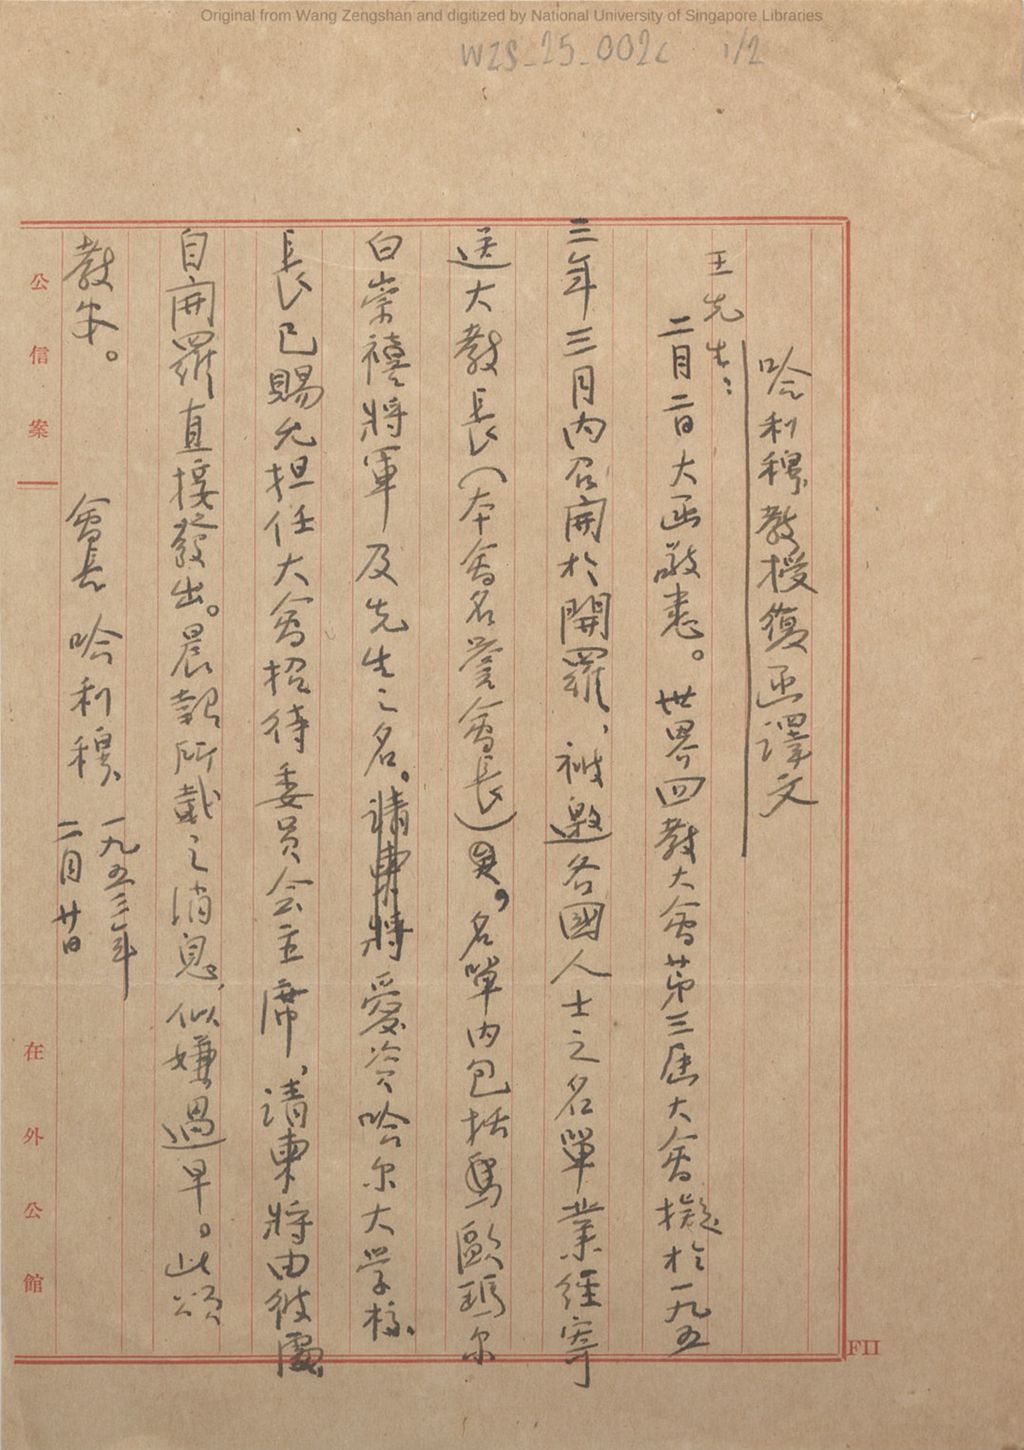 Original from Wang Zengshan and digitized by National University of Singapore Libraries
WZS_25_002c 1/2
哈利穆教授復函譯文
王先生：
二月二日大函敬悉。世界回教大會第三屆大會擬於一九五
三年三月內召開於開羅、被邀各國人士之名單業經寄
送大教長（本會名譽會長）矣。名單內包括馬歐瑪尔
白崇禧將軍及先生之名。請柬將愛資哈尔大学校
長已賜允担任大會招待委員会主席、請柬將由彼處
自開羅直接發出。晨報所載之消息，似嫌過早。此頌
教安。
會長 哈利穆
一九五三年
二月廿日
公信案
在外公館
FII